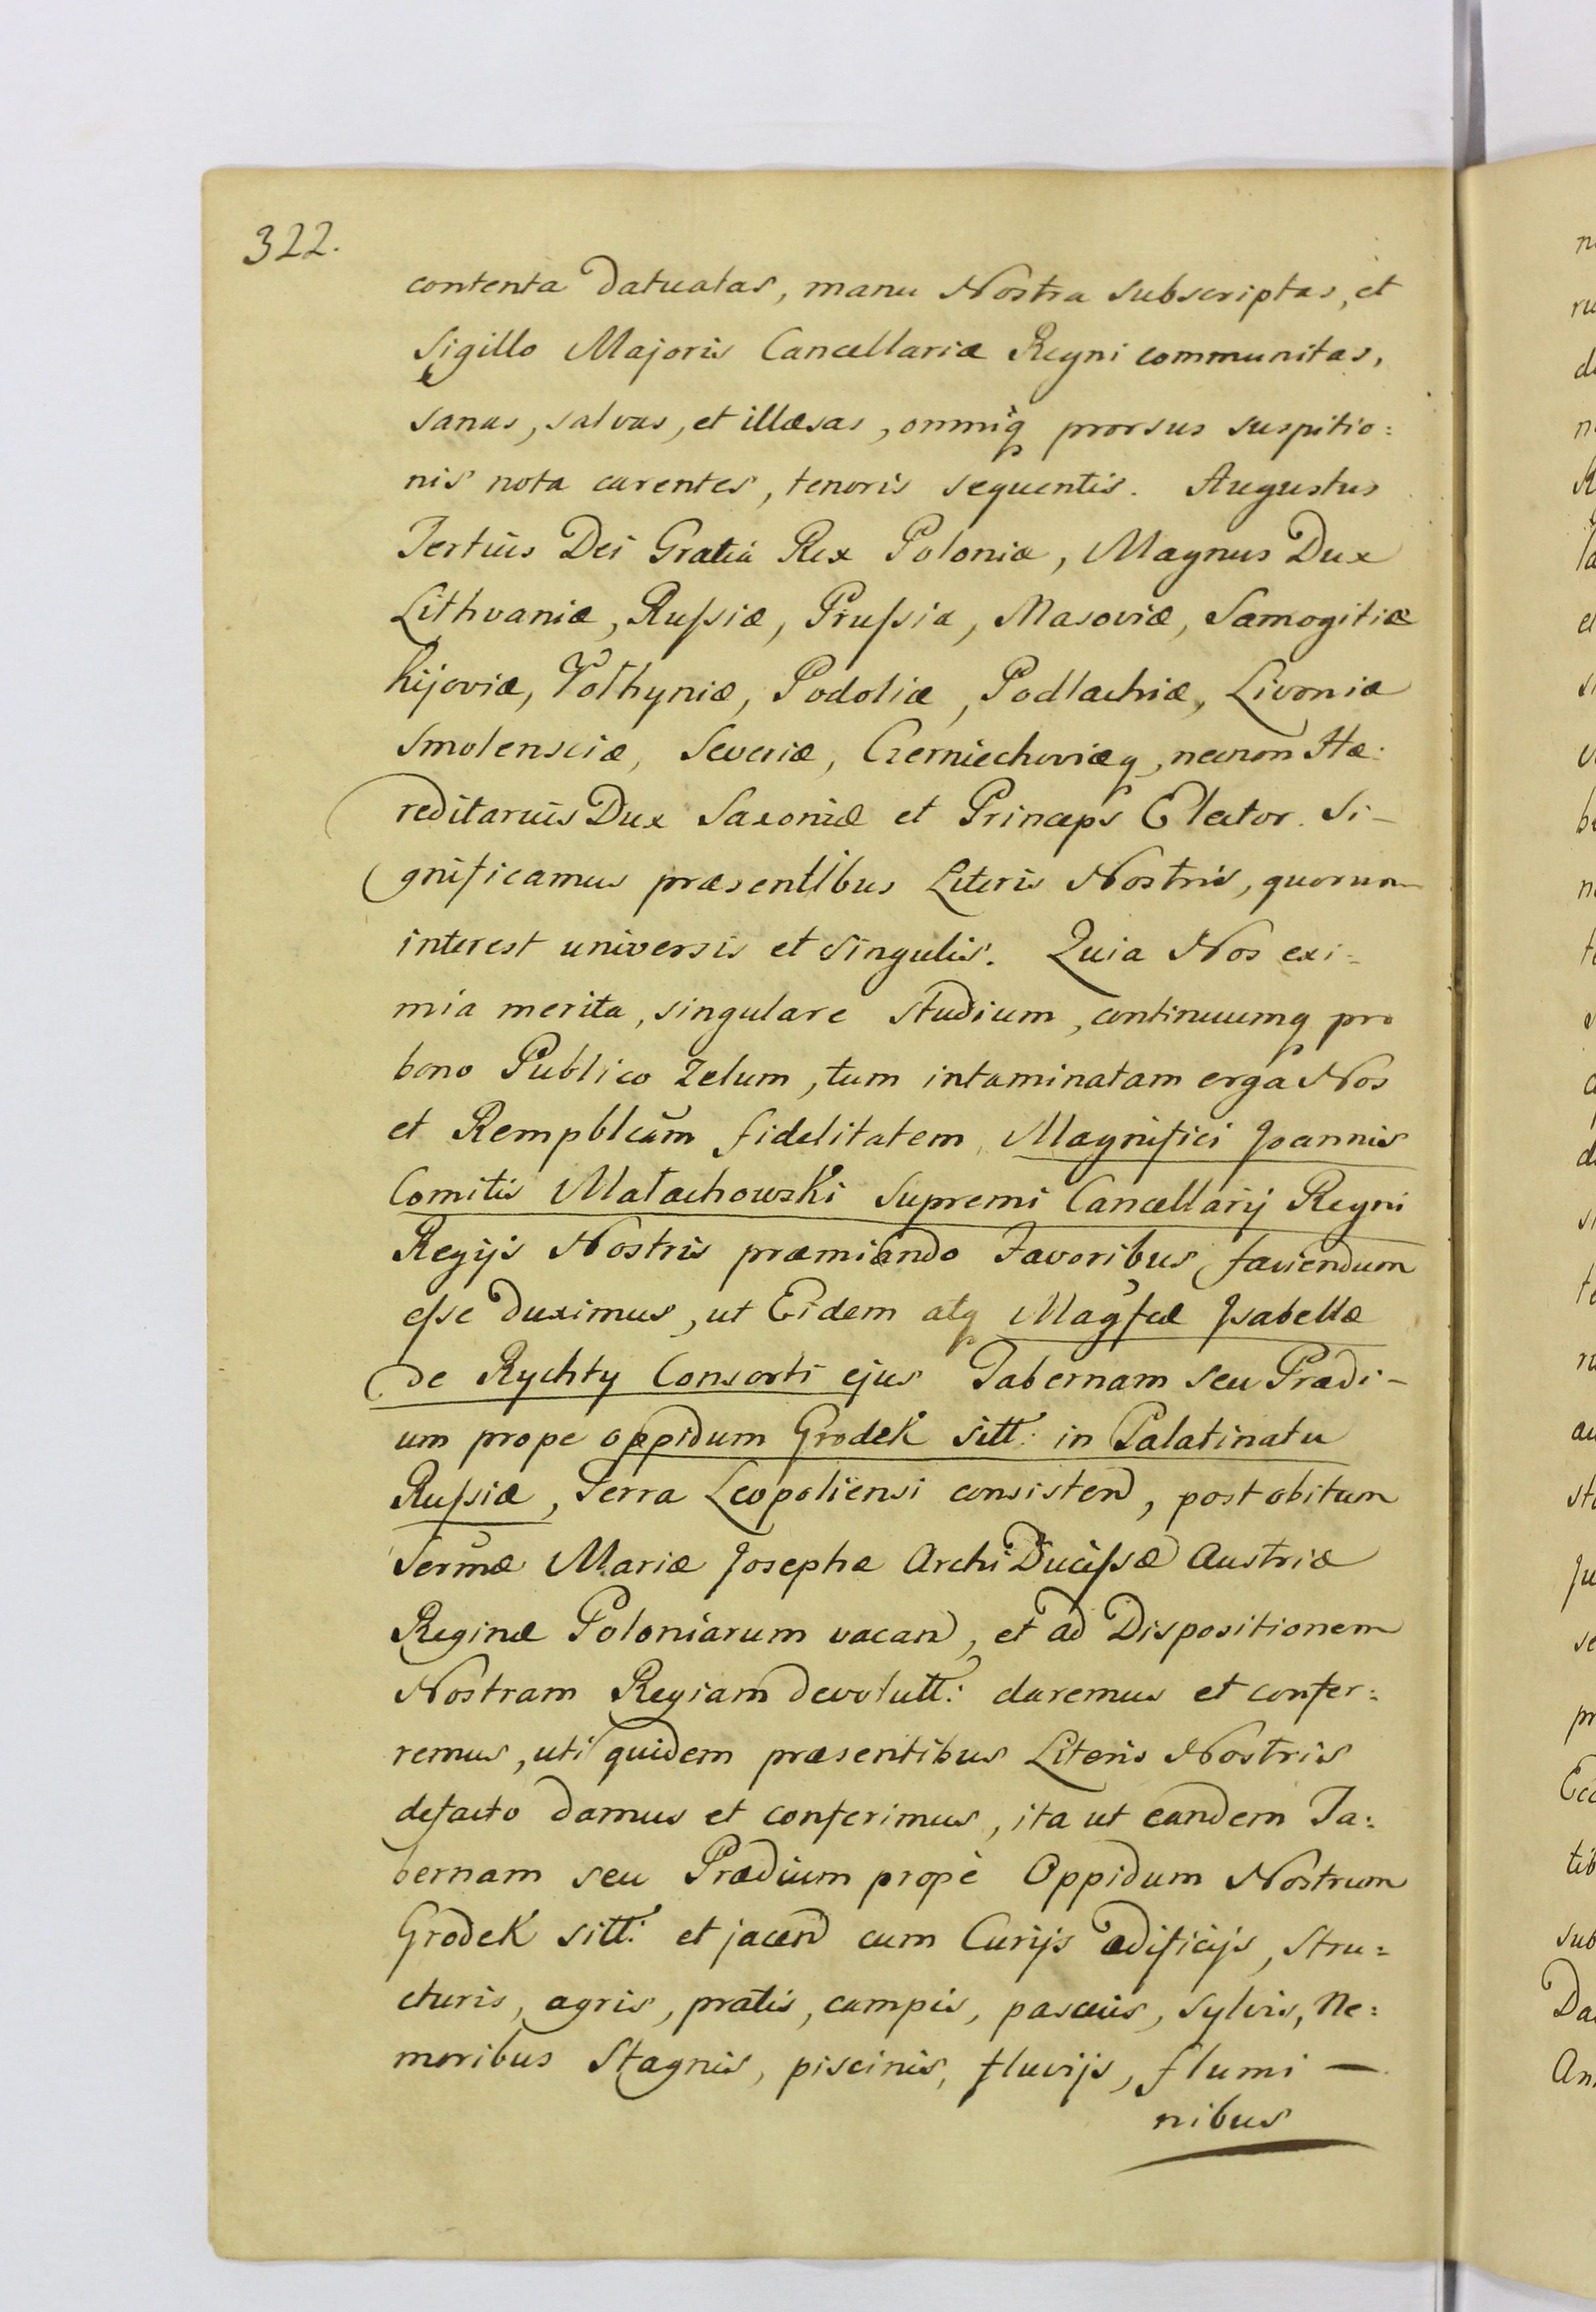 322.
contenta datuatas, manu Nostra subscriptas, et
Sigillo Majoris Cancellariæ Regni communitas,
sanas, salvas, et illæsas, omniq prorsus suspitio:
nis nota carentes, tenoris sequentis. Augustus
Tertius Dei Gratia Rex Poloniæ, Magnus Dux
Lithvaniæ, Rufsiæ, Prufsiæ, Masoviæ, Samogitiæ
Kijoviæ, Volhyniæ, Podoliæ, Podlachiæ, Livoniæ
Smolensciæ, Severiæ, Czerniechoviæq, necnon Hæ:
reditarius Dux Saxoniæ et Princeps Elector. Si-
gnificamus præsentibus Literis Nostris, quorum
interest universis et singulis. Quia Nos exi:
mia merita, singulare studium, continuumq pro
bono Publico zelum, tum intaminatam erga Nos
et Rempblcam fidelitatem Magnifici Joannis
Comitis Małachowski Supremi Cancellarij Regni
Regijs Nostris præmiando Favoribus faciendum
efse duximus, ut Eidem atq Magfcæ Jsabellæ
de Rychty Consorti ejus Tabernam seu Prædi-
um prope oppidum Grodek sitt: in Palatinatu
Rufsiæ, Terra Leopoliensi consisten, post obitum
Sermæ Mariæ Josephæ ArchiDucifsæ Austriæ
Reginæ Poloniarum vacan, et ad Dispositionem
Nostram Regiam devolutt: daremus et confer:
remus, uti quidem præsentibus Literis Nostris
defacto damus et conferimus, ita ut eandem Ta:
bernam seu Prædium propè Oppidum Nostrum
Grodek sitt: et jacen cum Curijs ædificijs, stru:
cturis, agris, pratis, campis, pascuis, sylvis, Ne:
moribus Stagnis, piscinis, fluvijs, flumi —
nibus